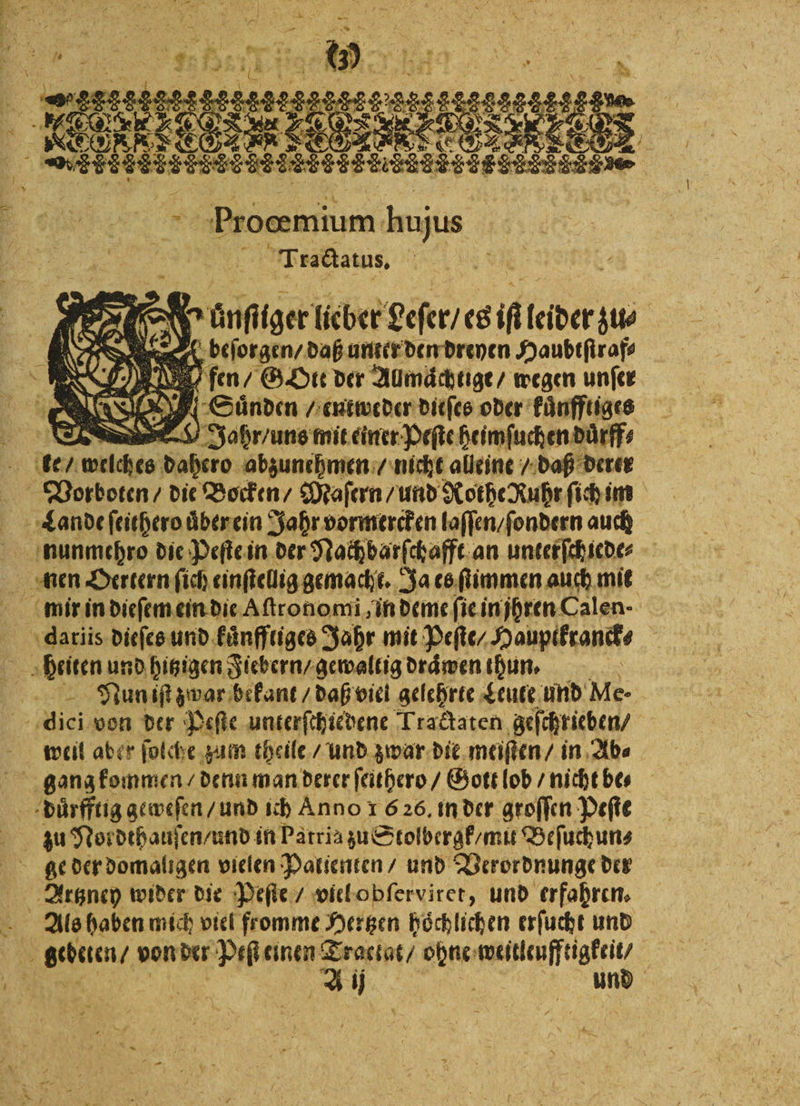 (3)
Prooemium hujus
Tractatus.
Günſtiger lieber Leſer/ es iſt leider zu-
beſorgen/ daß unter den dreyen Haubtſtraf-
fen/ GOtt der Allmächtige/ wegen unſer
Sünden / entweder dieſes oder künfftiges
Jahr/uns mit einer Peſte heimſuchen dürff-
te/ welches dahero abzunehmen / nicht alleine / daß derer
Vorboten/ die Bocken/ Maſern/und RotheRuhr ſich im
Lande ſeithero über ein Jahr vormercken laſſen/ſondern auch
nunmehro die Peſte in der Nachbarſchafft an unterſchiede-
nen Oertern ſich einſtellig gemacht. Ja es ſtimmen auch mit
mir in dieſem ein die Aſtronomi, in deme ſie in jhren Calen-
dariis dieſes und künfftiges Jahr mit Peſte/ Hauptkranck-
heiten und hitzigen Fiebern/ gewaltig dräwen thun.
Nun iſt zwar bekant / daß viel gelehrte Leute und Me-
dici von der Peſte unterſchiedene Tractaten geſchrieben/
weil aber ſolche zum theile / und zwar die meiſten/ in Ab-
gang kommen / denn man derer ſeithero / Gott lob / nicht be-
dürfftig geweſen/und ich Anno 1626. in der groſſen Peſte
zu Nordthauſen/und in Patria zuStolbergk/mit Beſuchun-
ge der domaligen vielen Patienten/ und Verordnunge der
Artzney wider die Peſte / viel obſerviret, und erfahren.
Als haben mich viel fromme Hertzen höchlichen erſucht und
gebeten/ von der Peſt einen Tractat/ ohne weitleufftigkeit/
A ij und